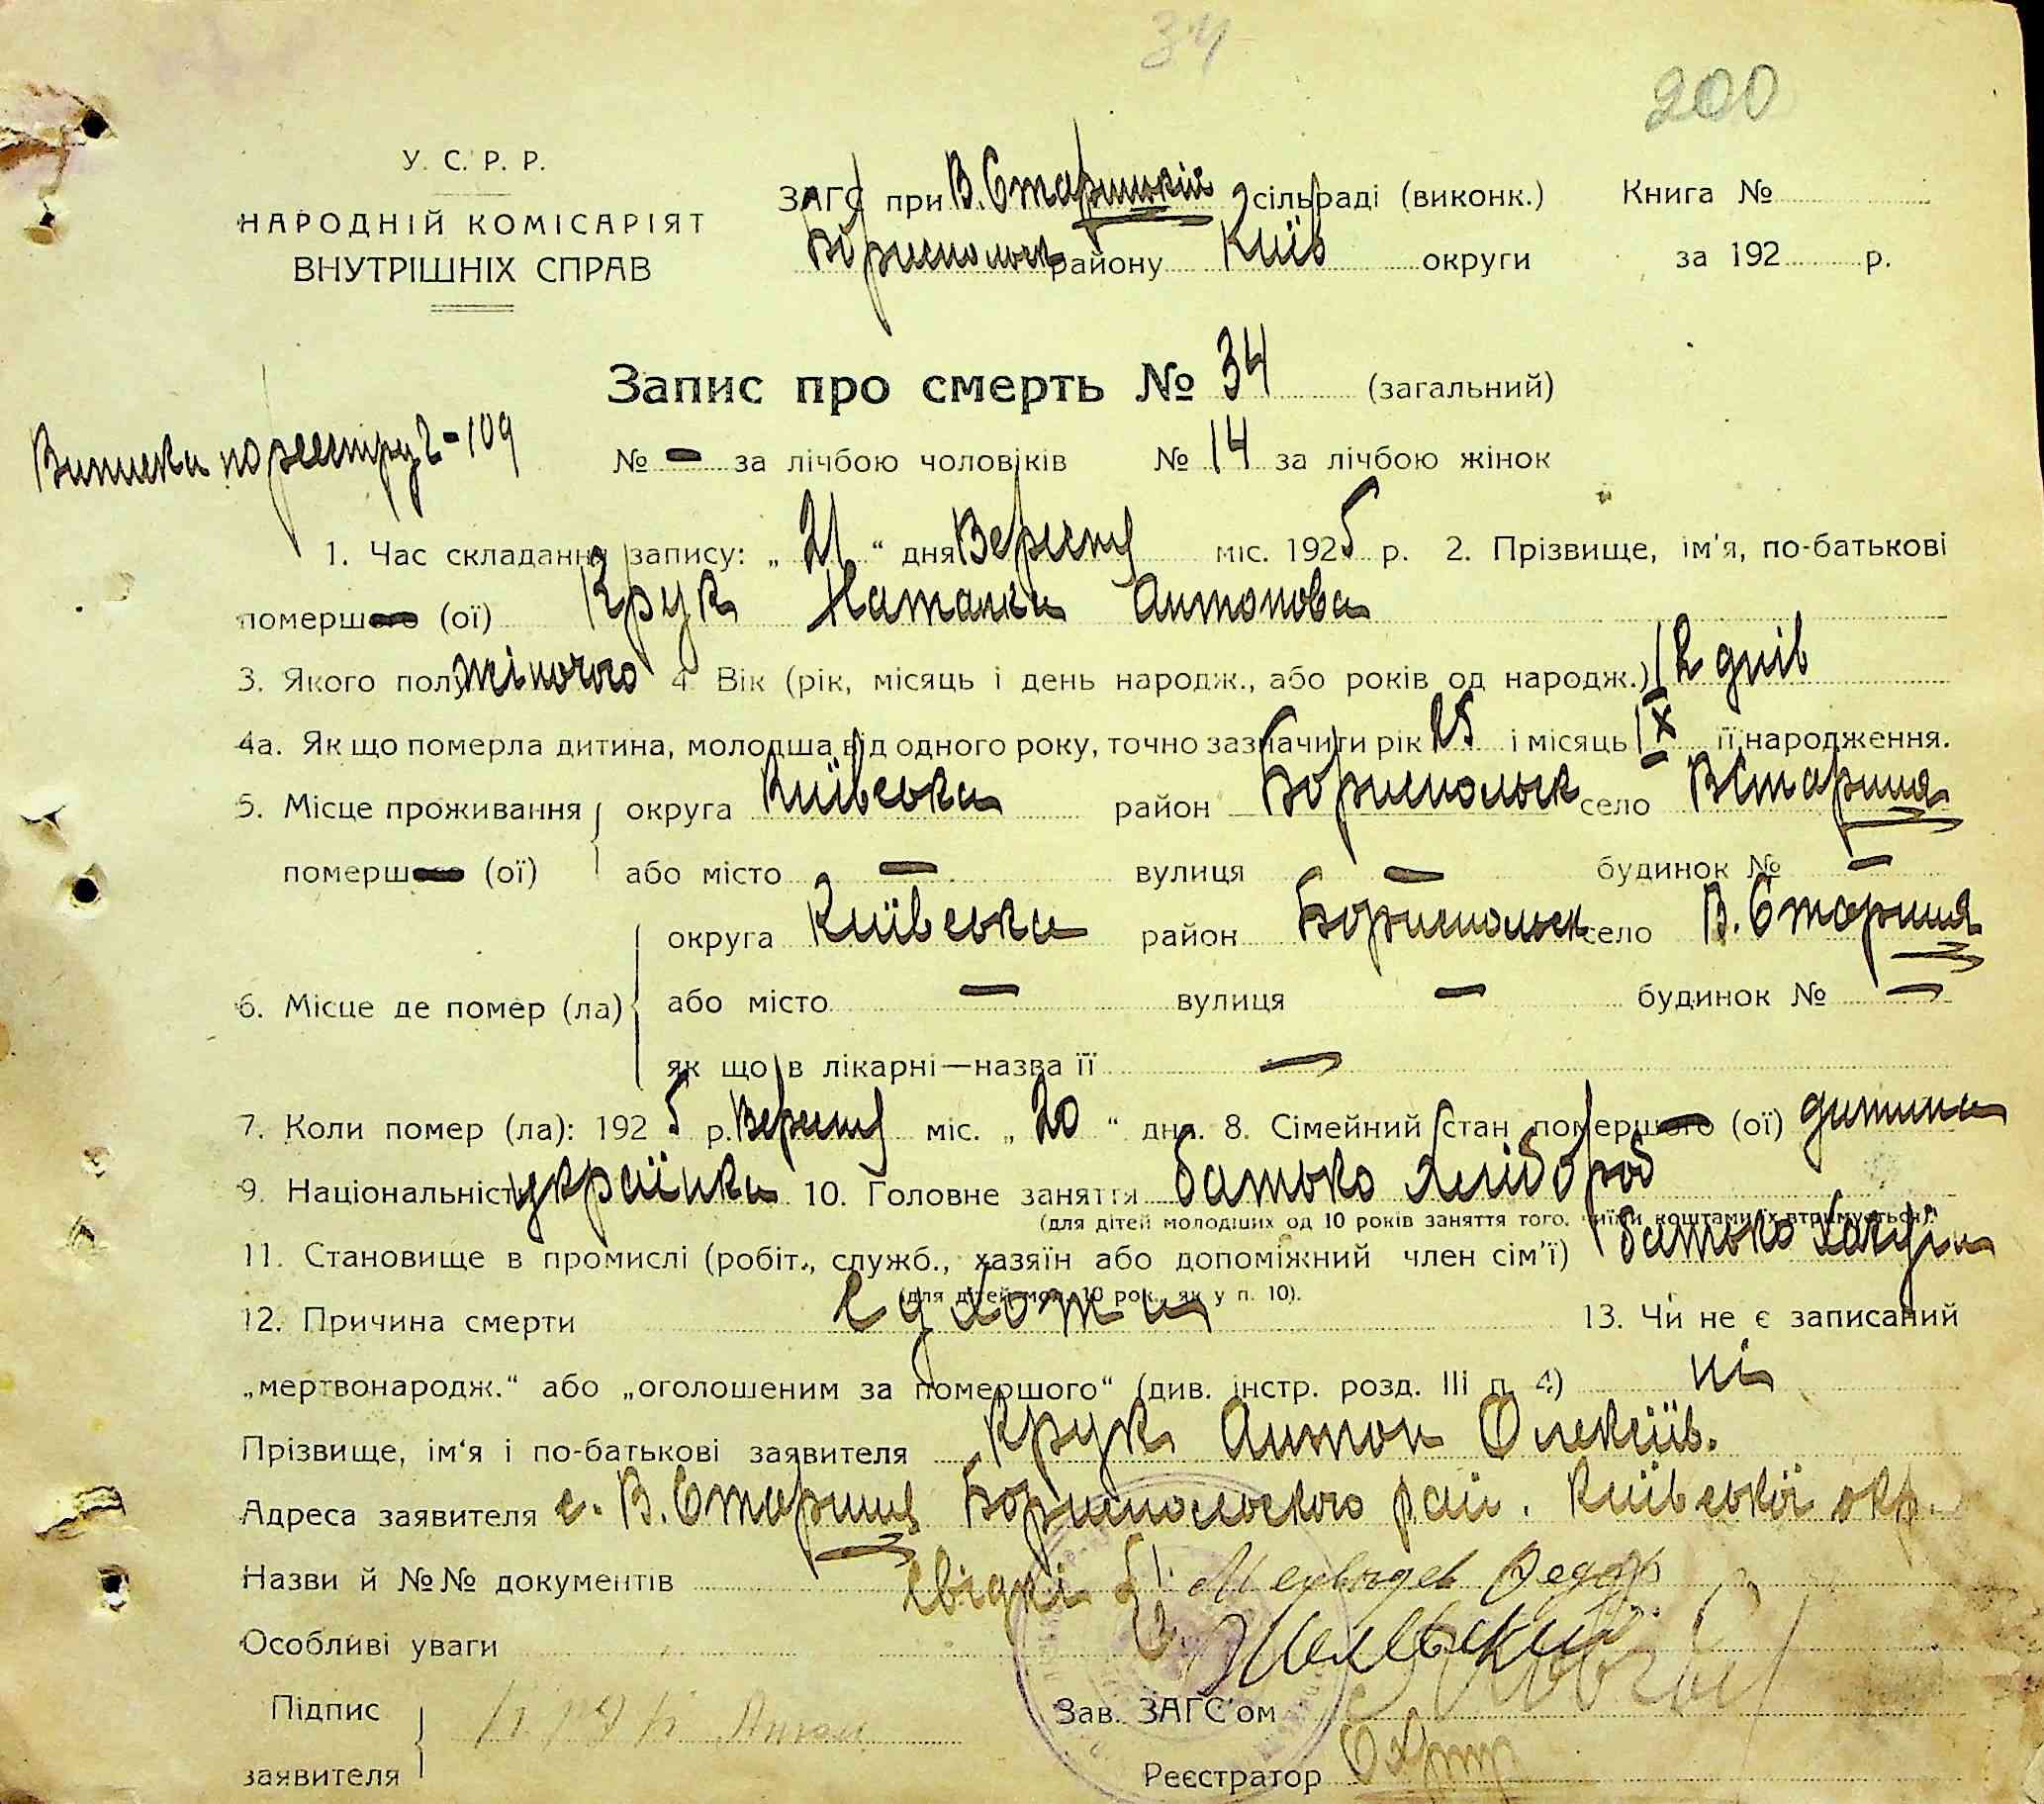 34
200
У. С. Р. Р.
НАРОДНІЙ КОМІСАРІЯТ
ВНУТРІШНІХ СПРАВ
ЗАГС при В. Старицькій сільраді (виконк.) Книга №
Бориспольск району Київ округи за 192 р.
Запис про смерть № 34 (загальний)
Виписка по реестру 2-109
№ – за лічбою чоловіків № 14 за лічбою жінок
1. Час складання запису: „ 21 “ дня Вересня міс. 1925 р. 2. Прізвище, ім'я, по-батькові
помершого (ої) Крук Наталка Антонова
3. Якого полу жіночого 4. Вік (рік, місяць і день народж., або років од народж.) 12 днів
4а. Як що померла дитина, молодша від одного року, точно зазначити рік 25 і місяць IX її народження.
5. Місце проживання округа Київська район Бориспольск село В Стариця
помершого (ої) або місто – вулиця – будинок № –
округа Київська район Бориспольск село В. Стариця
6. Місце де помер (ла) або місто – вулиця – будинок № –
як що в лікарні—назва її –
7. Коли помер (ла): 1925 р. Вересня міс. „ 20 “ дня. 8. Сімейний стан помершого (ої) дитина
9. Національність українка 10. Головне заняття батько хлібороб
(для дітей молодших од 10 років заняття того, чиїми коштами їх втримується)
11. Становище в промислі (робіт., служб., хазяїн або допоміжний член сім'ї) батько хазяїн
(для дітей мол. 10 рок., як у п. 10).
12. Причина смерти сухота 13. Чи не є записаний
„мертвонародж.“ або „оголошеним за помершого“ (див. інстр. розд. III п. 4) ні
Прізвище, ім'я і по-батькові заявителя Крук Антон Олексіїв.
Адреса заявителя с. В. Стариця Бориспольского рай. Київської окр.
Назви й №№ документів свідкі Федор
Особливі уваги
Підпис Крук Антон Зав. ЗАГС'ом
заявителя Реєстратор